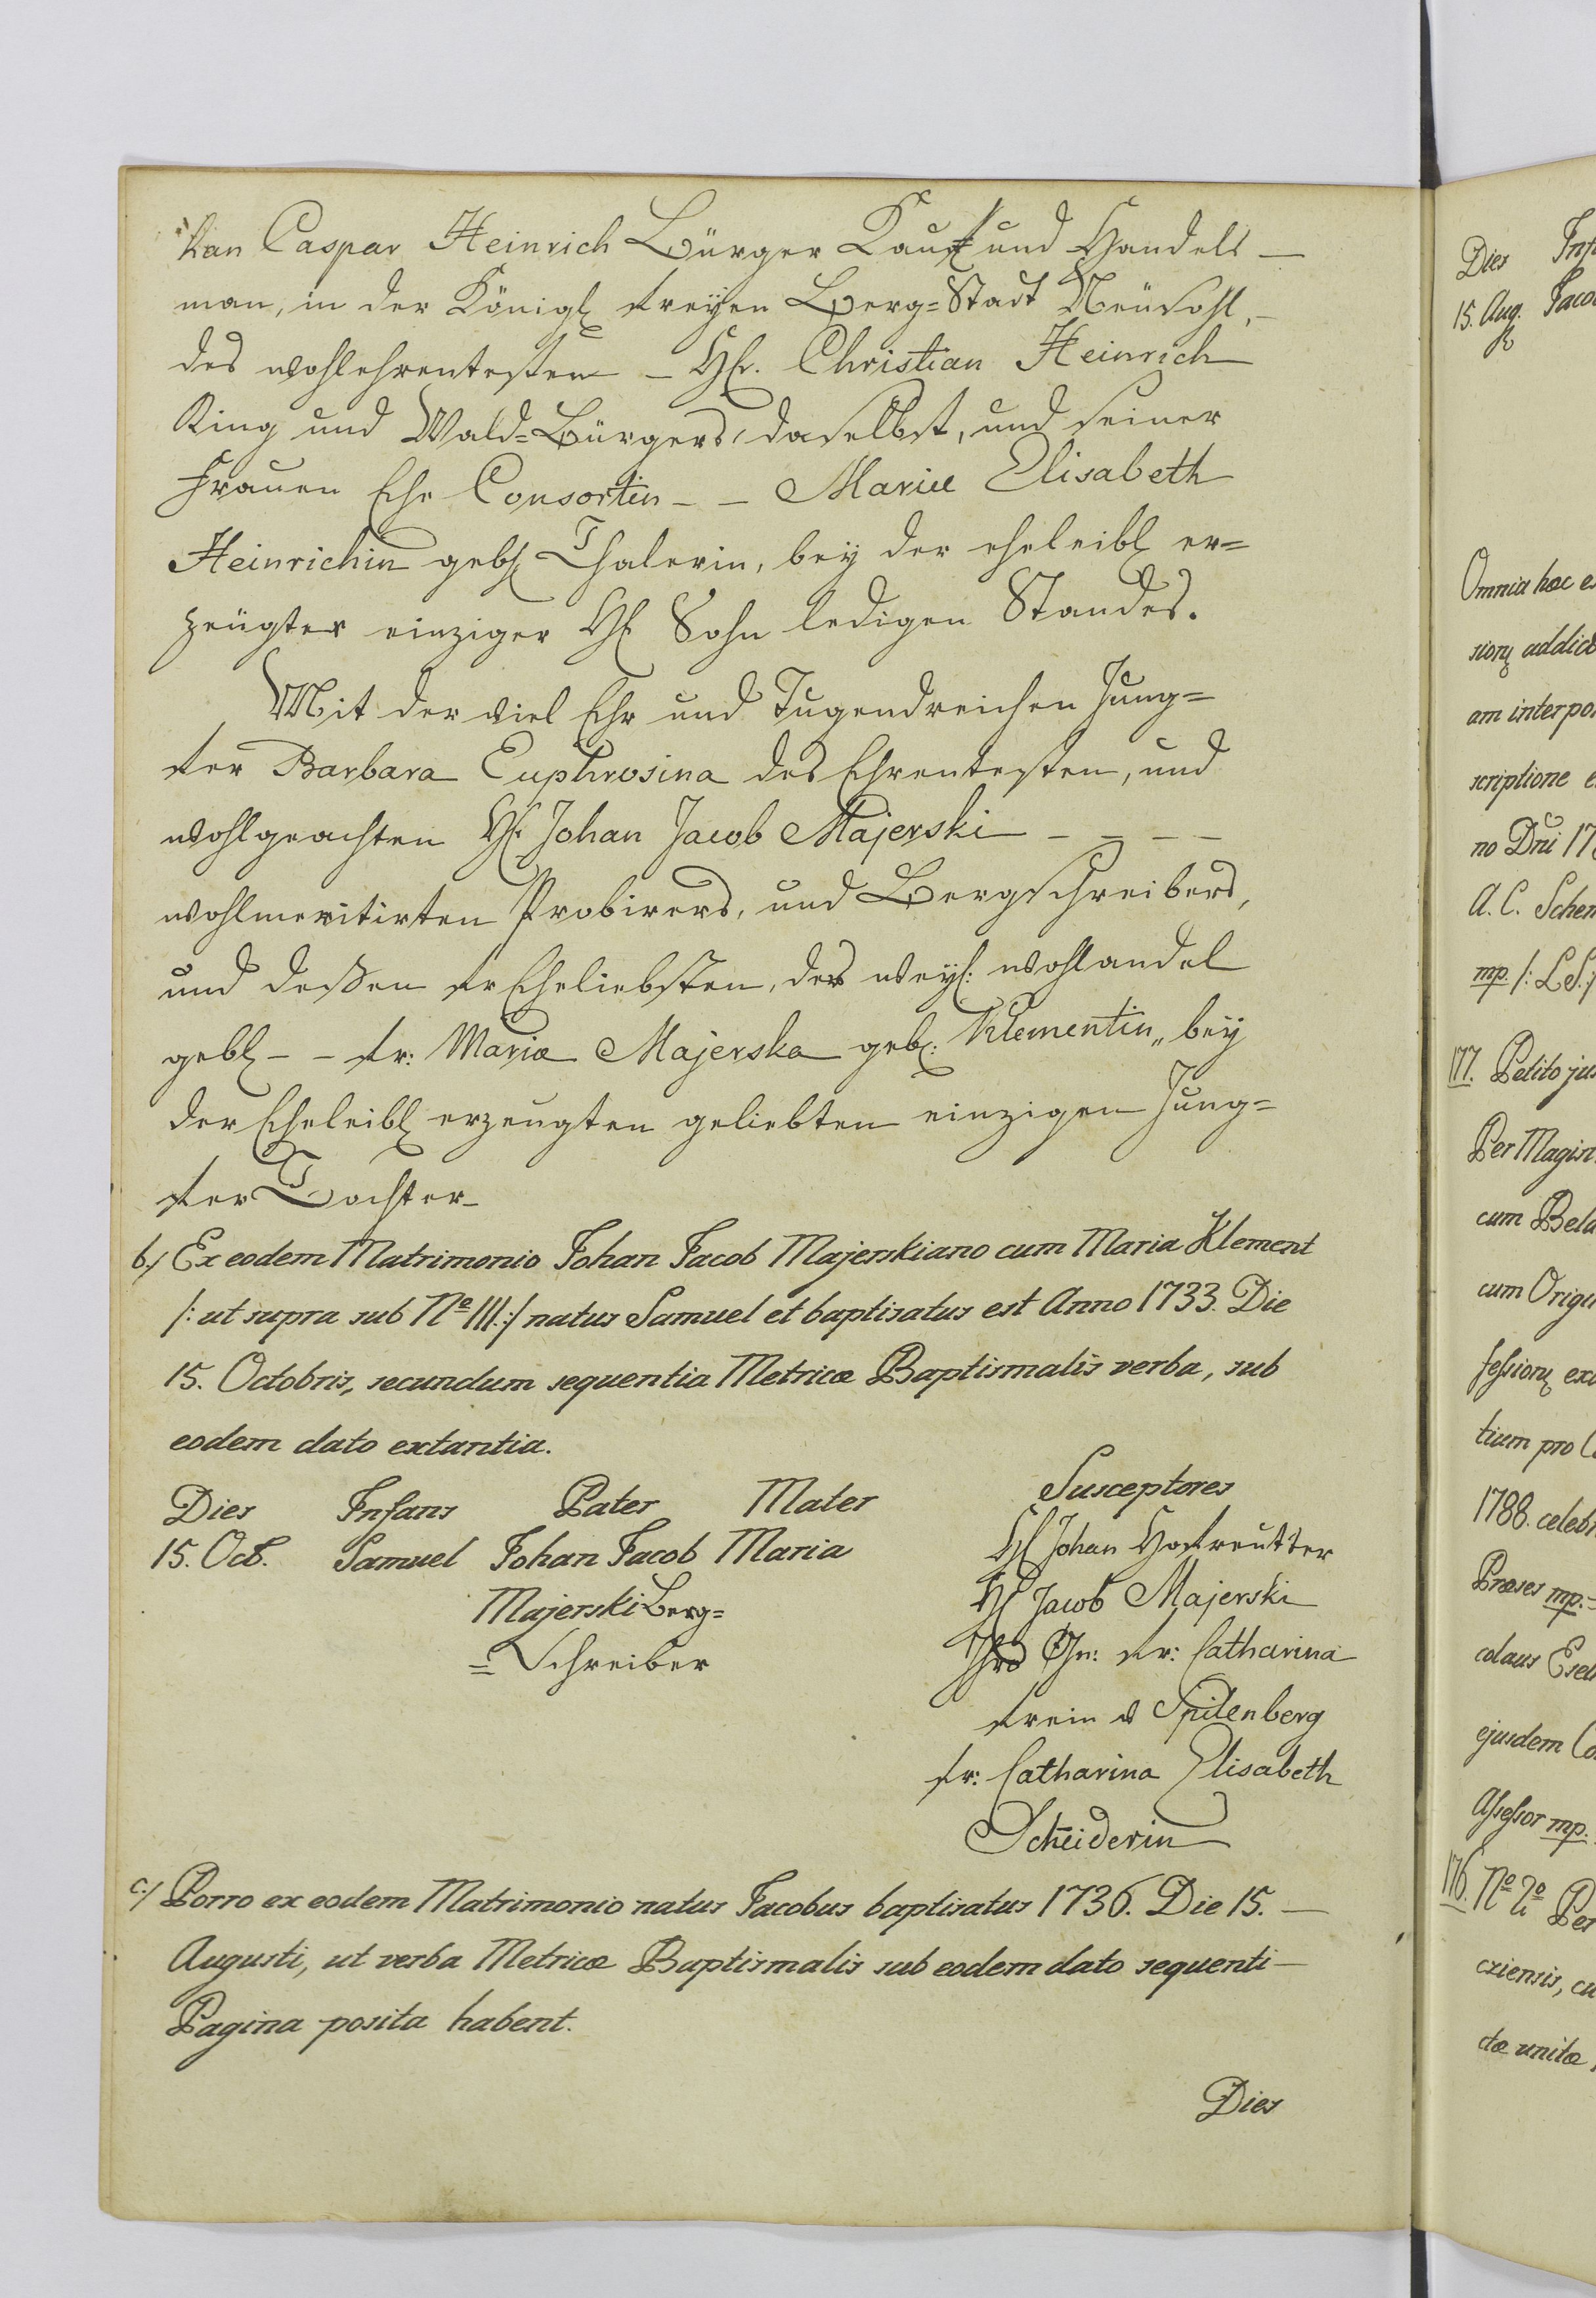 han Caspar Heinrich Bürger Kauf und Handels —
man, in der Königl freyen Berg=Stadt Neüsohl, —
des wohlehrenvesten — H. Christian Heinrich
Ring und Wald=Bürgers, daselbst, und seiner
Frauen Ehr Consortin — — Mariæ Elisabeth
Heinrichin geb. Thalerin, bey der eheleibl er=
zeügter einziger H. Sohn ledigen Standes.
Mit der viel Ehr und Tugendreichen Jung=
fer Barbara Euphrosina des Ehrenvesten, und
wohlgeachten H. Johan Jacob Majerski — — — —
wohlmeritirten Probirers, und Bergschreibers,
und deßen fr Eheliebsten, der weyl: wohlandel
gebl — — fr: Mariæ Majerska geb: Klementin,, bey
der Eheleibl erzeugten geliebten einzigen Jung=
fer Tochter —
b./ Ex eodem Matrimonio Johan Jacob Majerskiano cum Maria Klement
/: ut supra sub No III. :/ natus Samuel et baptisatus est Anno 1733. Die
15. Octobris, secundum sequentia Metricæ Baptismalis verba, sub
eodem dato extantia.
Dies Infans Pater Mater Susceptores
15. Oct. Samuel Johan Jacob Maria H. Johan Hofreutter
Majerski Berg= H. Jacob Majerski
=Schreiber Ihro Gn: fr: Catharina
frein v Spilenberg
fr: Catharina Elisabeth
Scheiderin
c./ Porro ex eodem Matrimonio natus Jacobus baptisatus 1736. Die 15. —
Augusti, ut verba Metricæ Baptismalis sub eodem dato sequenti —
Pagina posita habent.
Dies
Dies Inf
15. Aug. Jaco
Omnia hæc e
sion addict
am interpo
scriptione e
no Dni 17
A. C. Schem
mp. /: L.S. :/
177. Petito jus
Per Magis
cum Bela
cum Origi
feſsion ex
tium pro C
1788. celeb
Præses mp. =
colaus Esel
ejusdem Co
Aſseſsor mp.
176. No 2o Per
cziensis, cu
ctæ unitæ